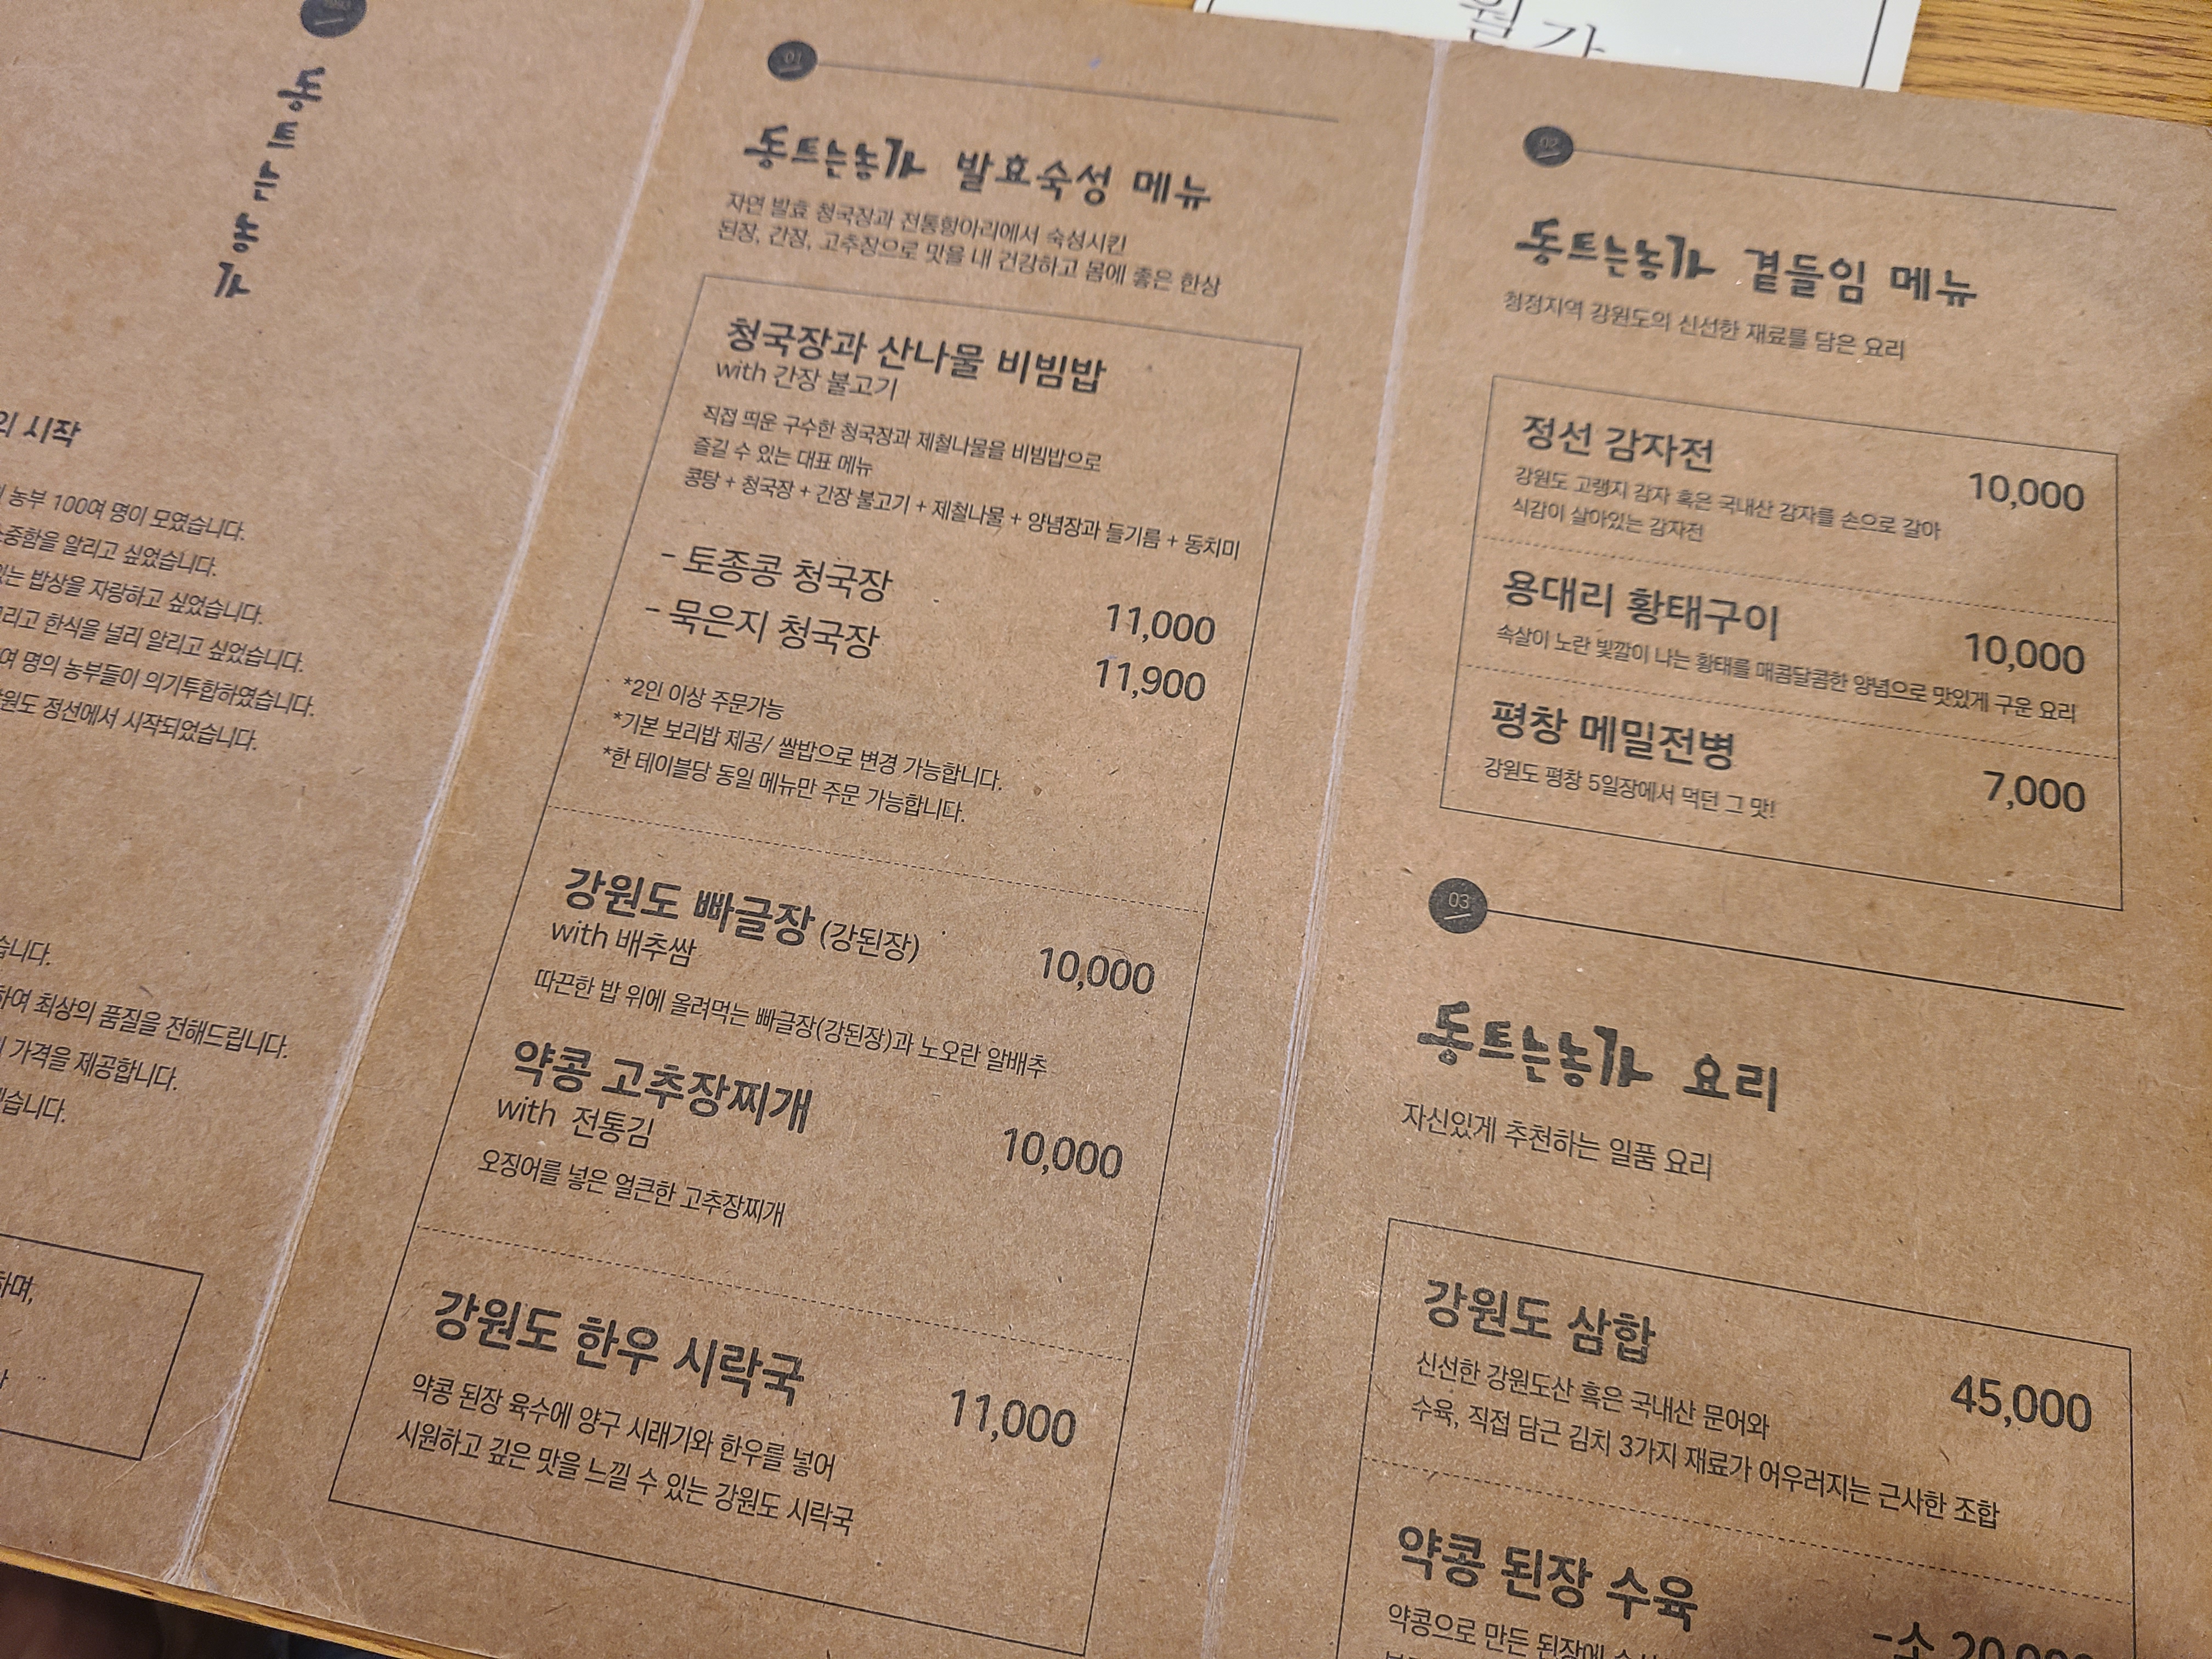 동트는농가
의 시작
농부 100여 명이 모였습니다.
소중함을 알리고 싶었습니다.
있는 밥상을 자랑하고 싶었습니다.
그리고 한식을 널리 알리고 싶었습니다.
여 명의 농부들이 의기투합하였습니다.
강원도 정선에서 시작되었습니다.
습니다.
하여 최상의 품질을 전해드립니다.
가격을 제공합니다.
습니다.
하며,
01
동트는농가 발효숙성 메뉴
자연 발효 청국장과 전통항아리에서 숙성시킨
된장, 간장, 고추장으로 맛을 내 건강하고 몸에 좋은 한상
청국장과 산나물 비빔밥
with 간장 불고기
직접 띄운 구수한 청국장과 제철나물을 비빔밥으로
즐길 수 있는 대표 메뉴
콩탕 + 청국장 + 간장 불고기 + 제철나물 + 양념장과 들기름 + 동치미
- 토종콩 청국장 11,000
- 묵은지 청국장 11,900
*2인 이상 주문가능
*기본 보리밥 제공/ 쌀밥으로 변경 가능합니다.
*한 테이블당 동일 메뉴만 주문 가능합니다.
강원도 빠글장 (강된장) 10,000
with 배추쌈
따끈한 밥 위에 올려먹는 빠글장(강된장)과 노오란 알배추
약콩 고추장찌개 10,000
with 전통김
오징어를 넣은 얼큰한 고추장찌개
강원도 한우 시락국 11,000
약콩 된장 육수에 양구 시래기와 한우를 넣어
시원하고 깊은 맛을 느낄 수 있는 강원도 시락국
월간
02
동트는농가 곁들임 메뉴
청정지역 강원도의 신선한 재료를 담은 요리
정선 감자전 10,000
강원도 고랭지 감자 혹은 국내산 감자를 손으로 갈아
식감이 살아있는 감자전
용대리 황태구이 10,000
속살이 노란 빛깔이 나는 황태를 매콤달콤한 양념으로 맛있게 구운 요리
평창 메밀전병 7,000
강원도 평창 5일장에서 먹던 그 맛!
03
동트는농가 요리
자신있게 추천하는 일품 요리
강원도 삼합 45,000
신선한 강원도산 혹은 국내산 문어와
수육, 직접 담근 김치 3가지 재료가 어우러지는 근사한 조합
약콩 된장 수육
-소 20,000
약콩으로 만든 된장에